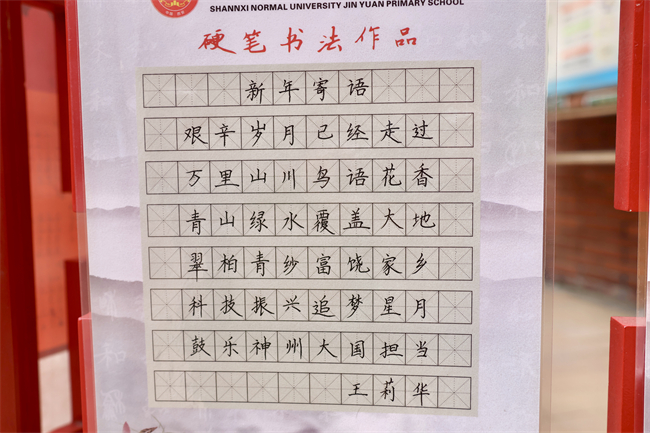 SHANNXI NORMAL UNIVERSITY JIN YUAN PRIMARY SCHOOL
硬笔书法作品
新年寄语
艰辛岁月已经走过
万里山川鸟语花香
青山绿水覆盖大地
翠柏青纱富饶家乡
科技振兴追梦星月
鼓乐神州大国担当
王莉华